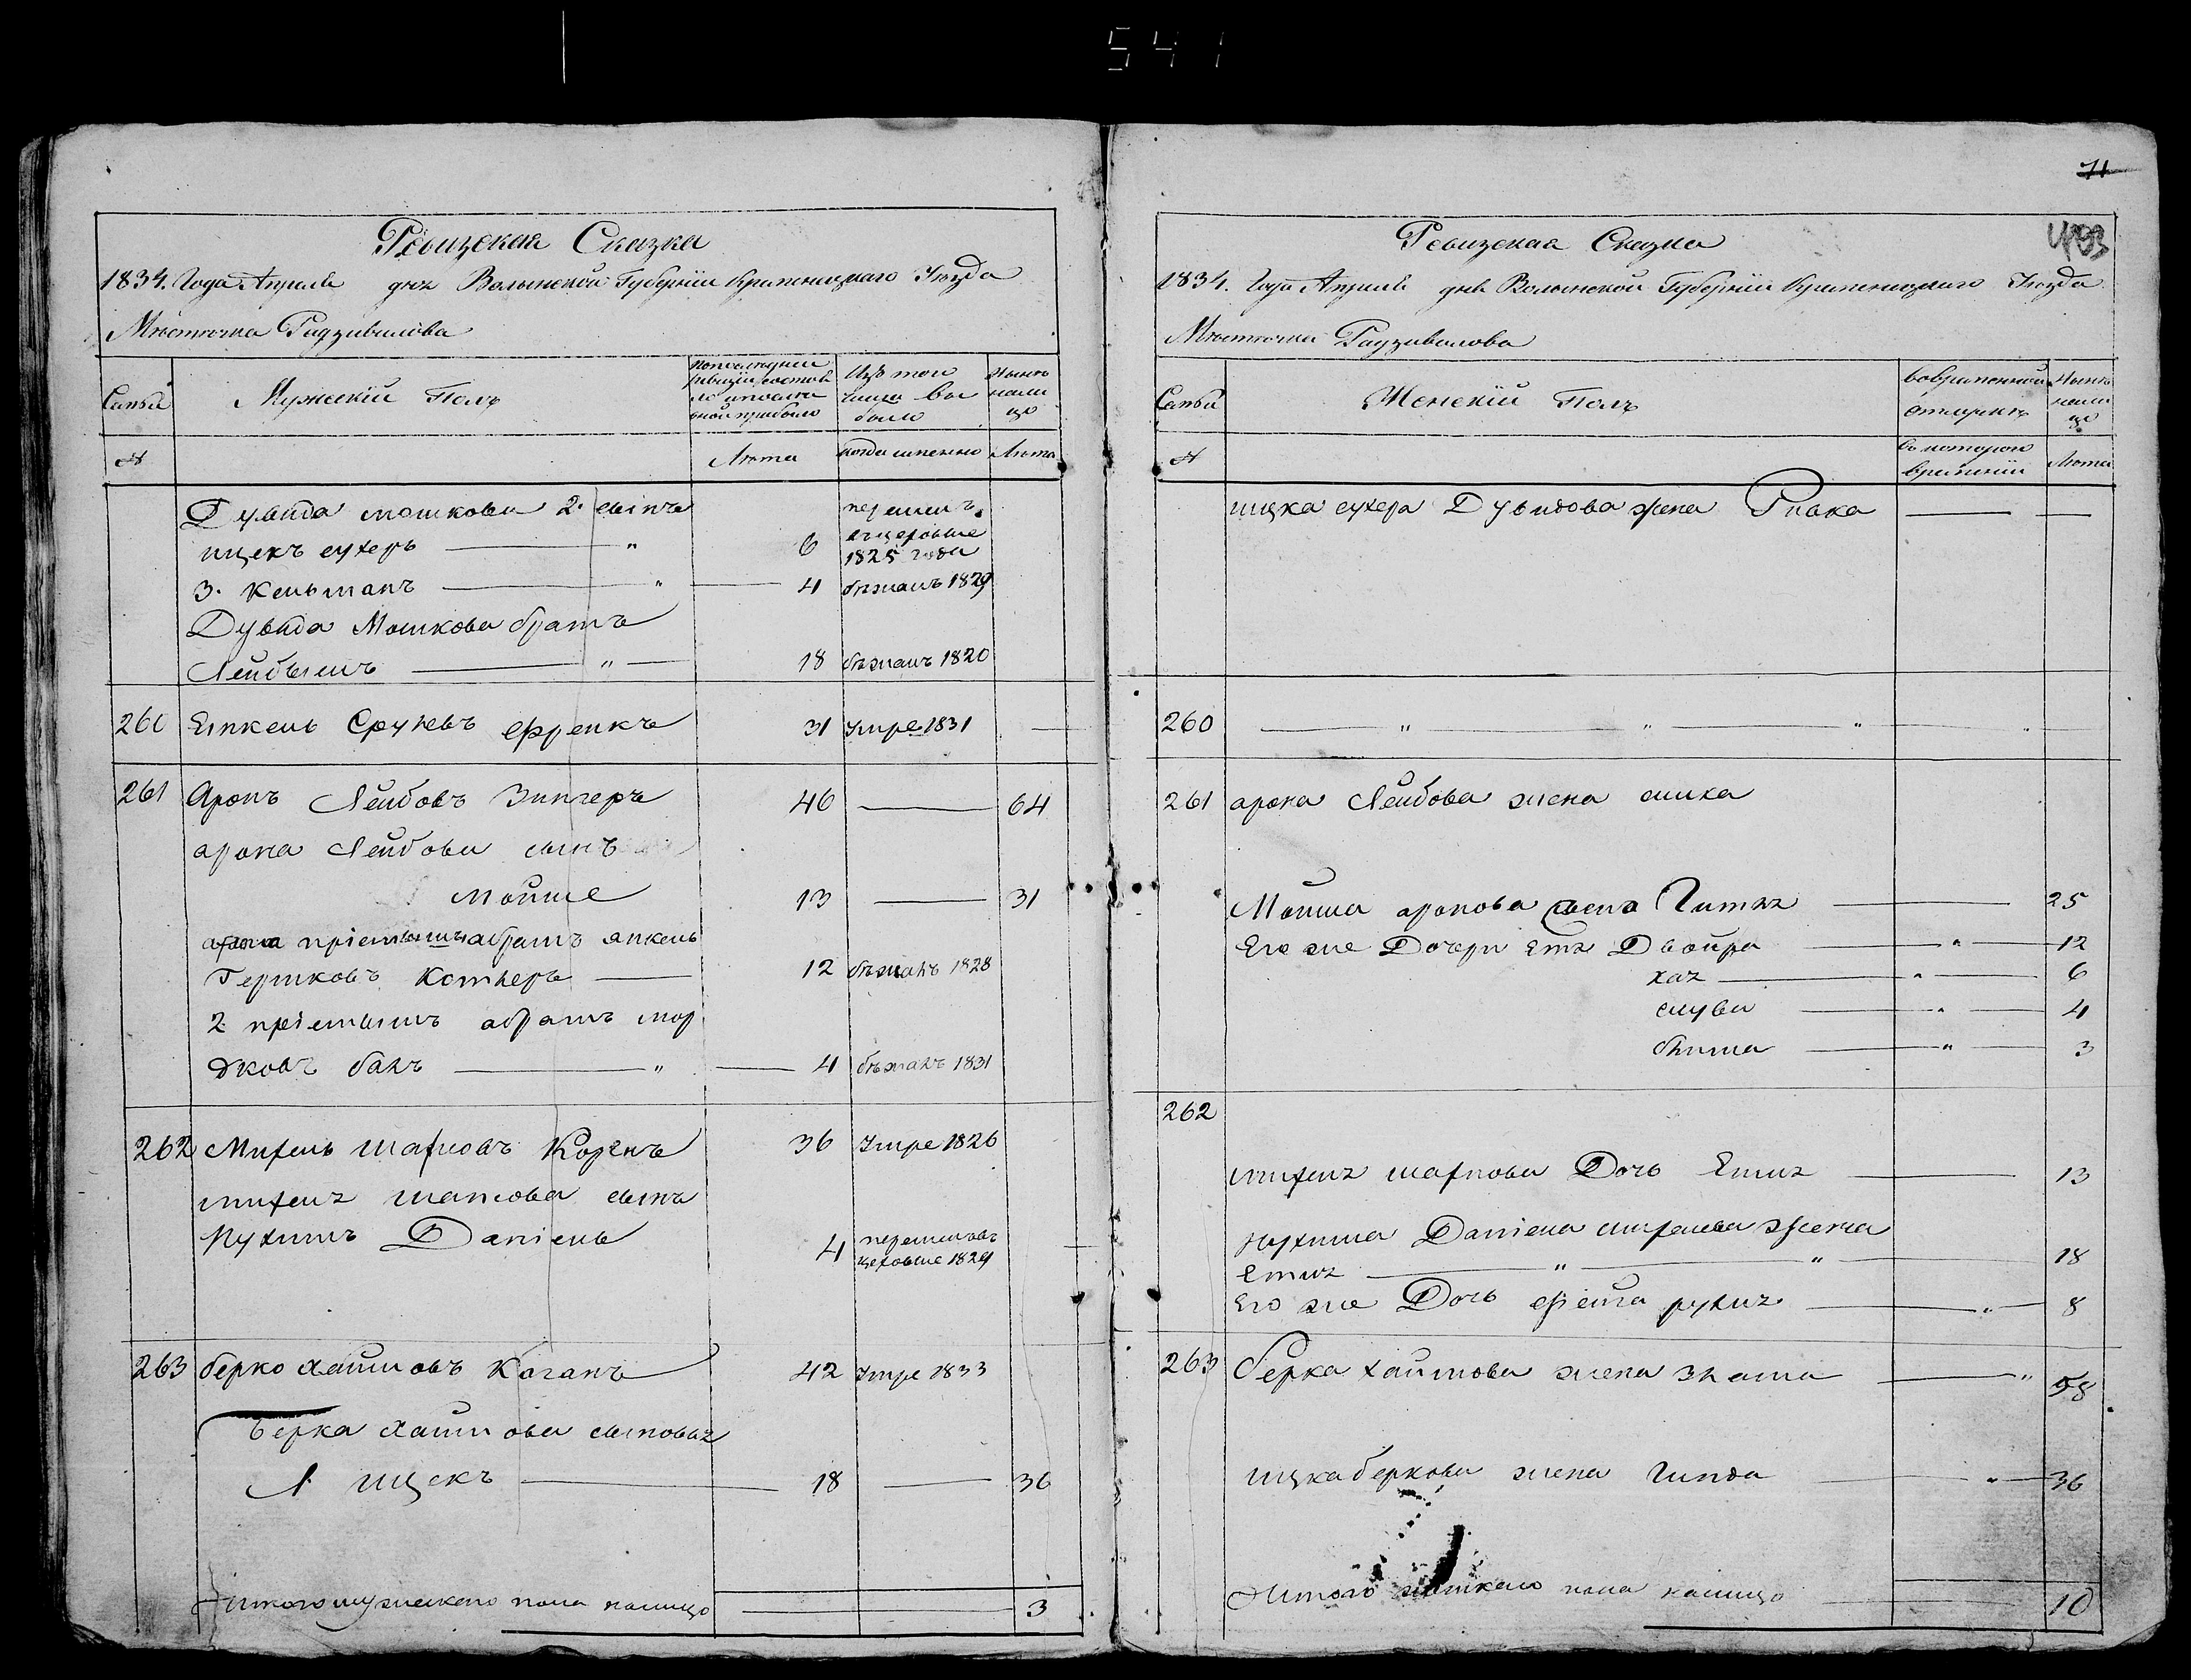 541
Ревизская Сказка
1834. Года Апреля дня Волынской Губернии Кременецкаго Уезда
Местечка Радзивилова
Семьи
Мужеский Полъ
По последней ревизии состояло и после оной прибыло
Изъ того числа выбыло
Ныне налицо
№
Лета
когда именно
Лета
Дувида мошкова 2. сынъ
ицекъ сухеръ — " 6 перешелъ 1825 года
3. Кельманъ — " — 4 бежалъ 1829
Дувида Мошкова братъ
Лейбышъ — " — 18 бежалъ 1820
260 Янкель Сруневъ Френкъ 31 Умре 1831 —
261 Аронъ Лейбовъ Зингеръ 46 — 64
арона Лейбова сынъ
мойше 13 — 31
арона приемышъ абрамъ янкель
Гершковъ Котнеръ — 12 бежалъ 1828
2 приемышъ абрамъ мор
дковъ банъ — " — 4 бежалъ 1831
262 Михель шаповъ Коренъ 36 Умре 1826
михеля шапсова сынъ
Нухимъ Daniель 4 перешелъ въ цеховые 1829
263 берко хаимовъ Коганъ 42 Умре 1833
Берка хаимова сыновья
1. ицекъ — 18 — 36
Итого мужескаго пола налицо — 3
71
493
Ревизская Сказка
1834. Года Апреля дня Волынской Губернии Кременецкаго Уезда
Местечка Радзивилова
Семьи
Женский Полъ
Во временной отлучке
Ныне налицо
№
съ котораго времени
Лета
ицка сухера Дувидова жена Ривка — —
260 — " — " — " —
261 арона Лейбова жена
Мойша аронова жена Гитля — 25
Его же Дочери Двойра — " — 12
хая — " — 6
— " — 4
— " — 3
262
михеля Дочь — 13
Нухима Daniела михелева жена
— " — " — 18
Его же Дочь фейга рухля — " — 8
263 берка хаимова жена злата — " 58
ицка беркова жена гинда — " — 36
Итого женскаго пола налицо — 10